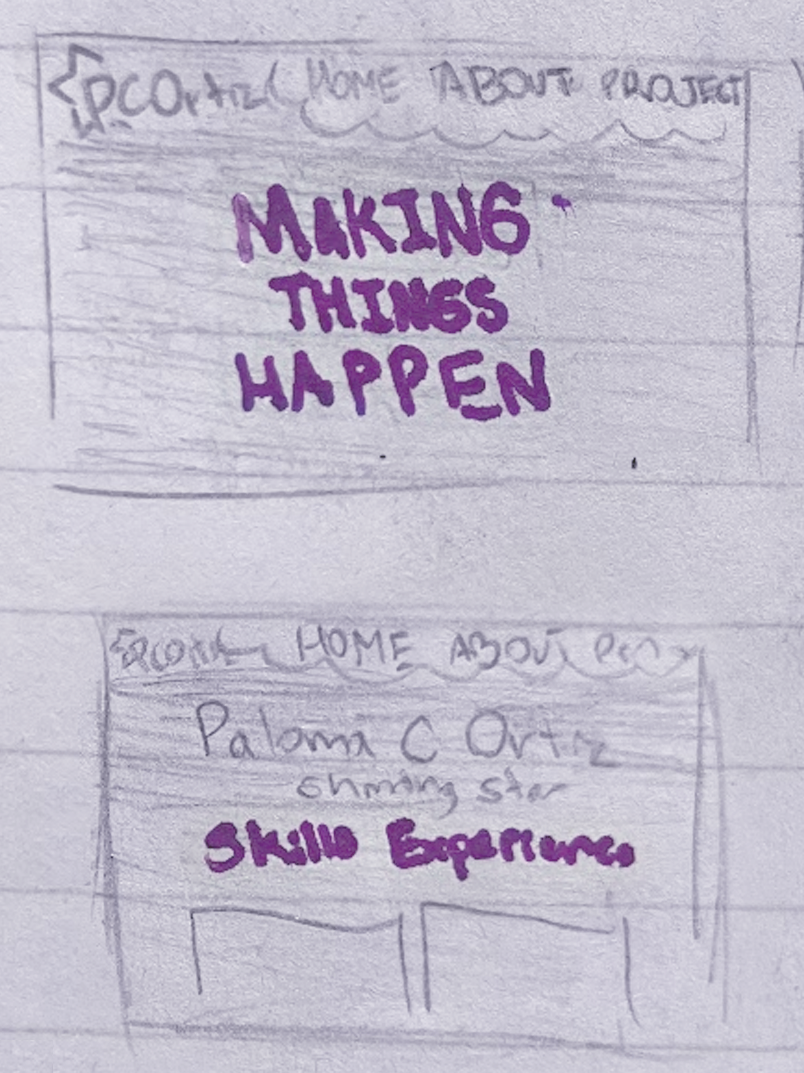 PCOrtiz HOME ABOUT PROJECT
MAKING
THINGS
HAPPEN
HOME ABOUT
Paloma C Ortiz
shining star
Skills Experience